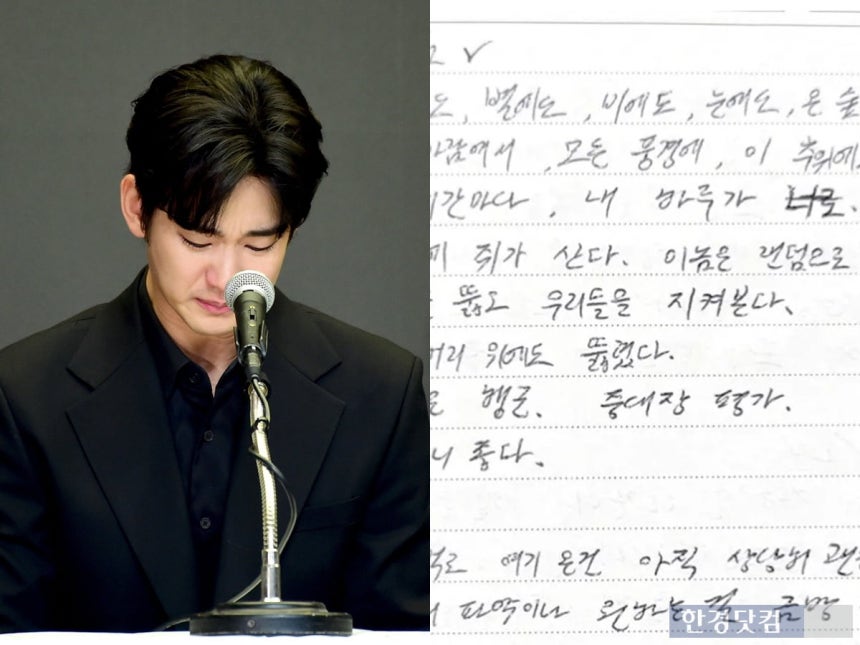 도, 별에도, 비에도, 눈에도, 온 숲
바람에서, 모든 풍경에, 이 추위에
간마다, 내 하루가
쥐가 산다. 이놈은 랜덤으로
뚫고 우리들을 지켜본다.
머리 위에도 뚫렸다.
행군. 중대장 평가.
좋다.
여기 온건 아직 상당히
파악이나 원하는 걸 금방
한경닷컴